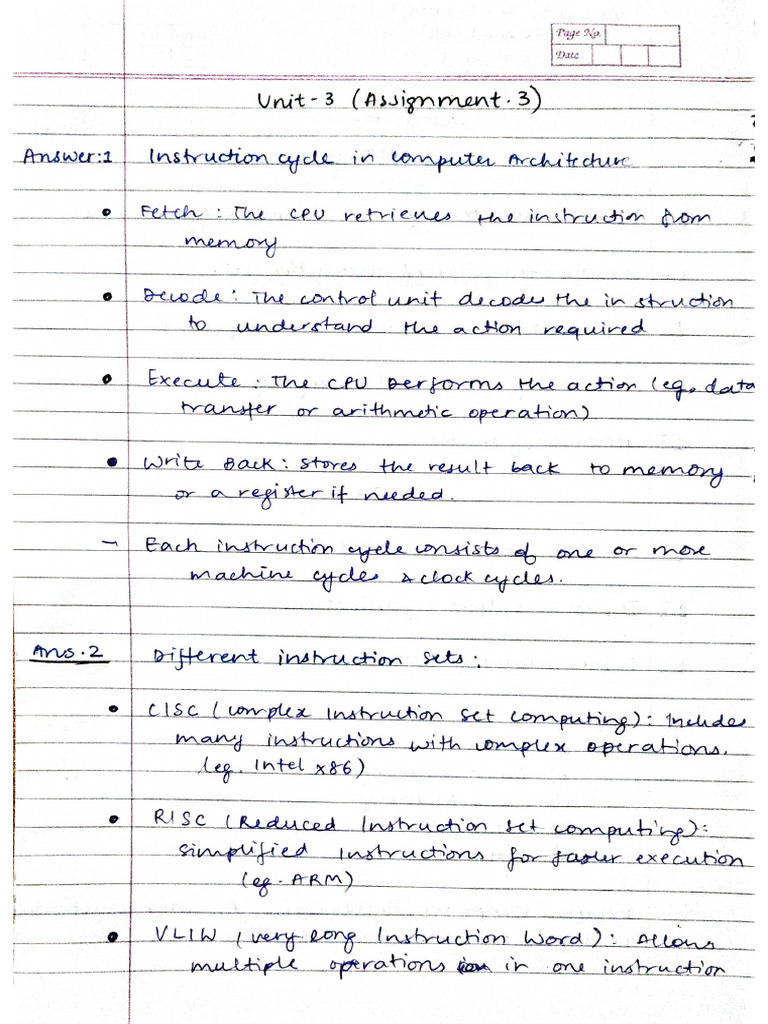 Page No.
Date
Unit-3 (Assignment.3)
Answer:1 Instruction cycle in computer Architecture
• Fetch: The CPU retrieves the instruction from
memory
• Decode: The control unit decodes the instruction
to understand the action required
• Execute: The CPU performs the action (eg. data
transfer or arithmetic operation)
• Write Back: Stores the result back to memory
or a register if needed.
– Each instruction cycle consists of one or more
machine cycles & clock cycles.
Ans.2 Different instruction sets:
• CISC (complex Instruction set computing): Includes
many instructions with complex operations.
(eg. Intel x86)
• RISC (Reduced Instruction set computing):
simplified instructions for faster execution
(eg. ARM)
• VLIW (very long Instruction Word): Allows
multiple operations in one instruction